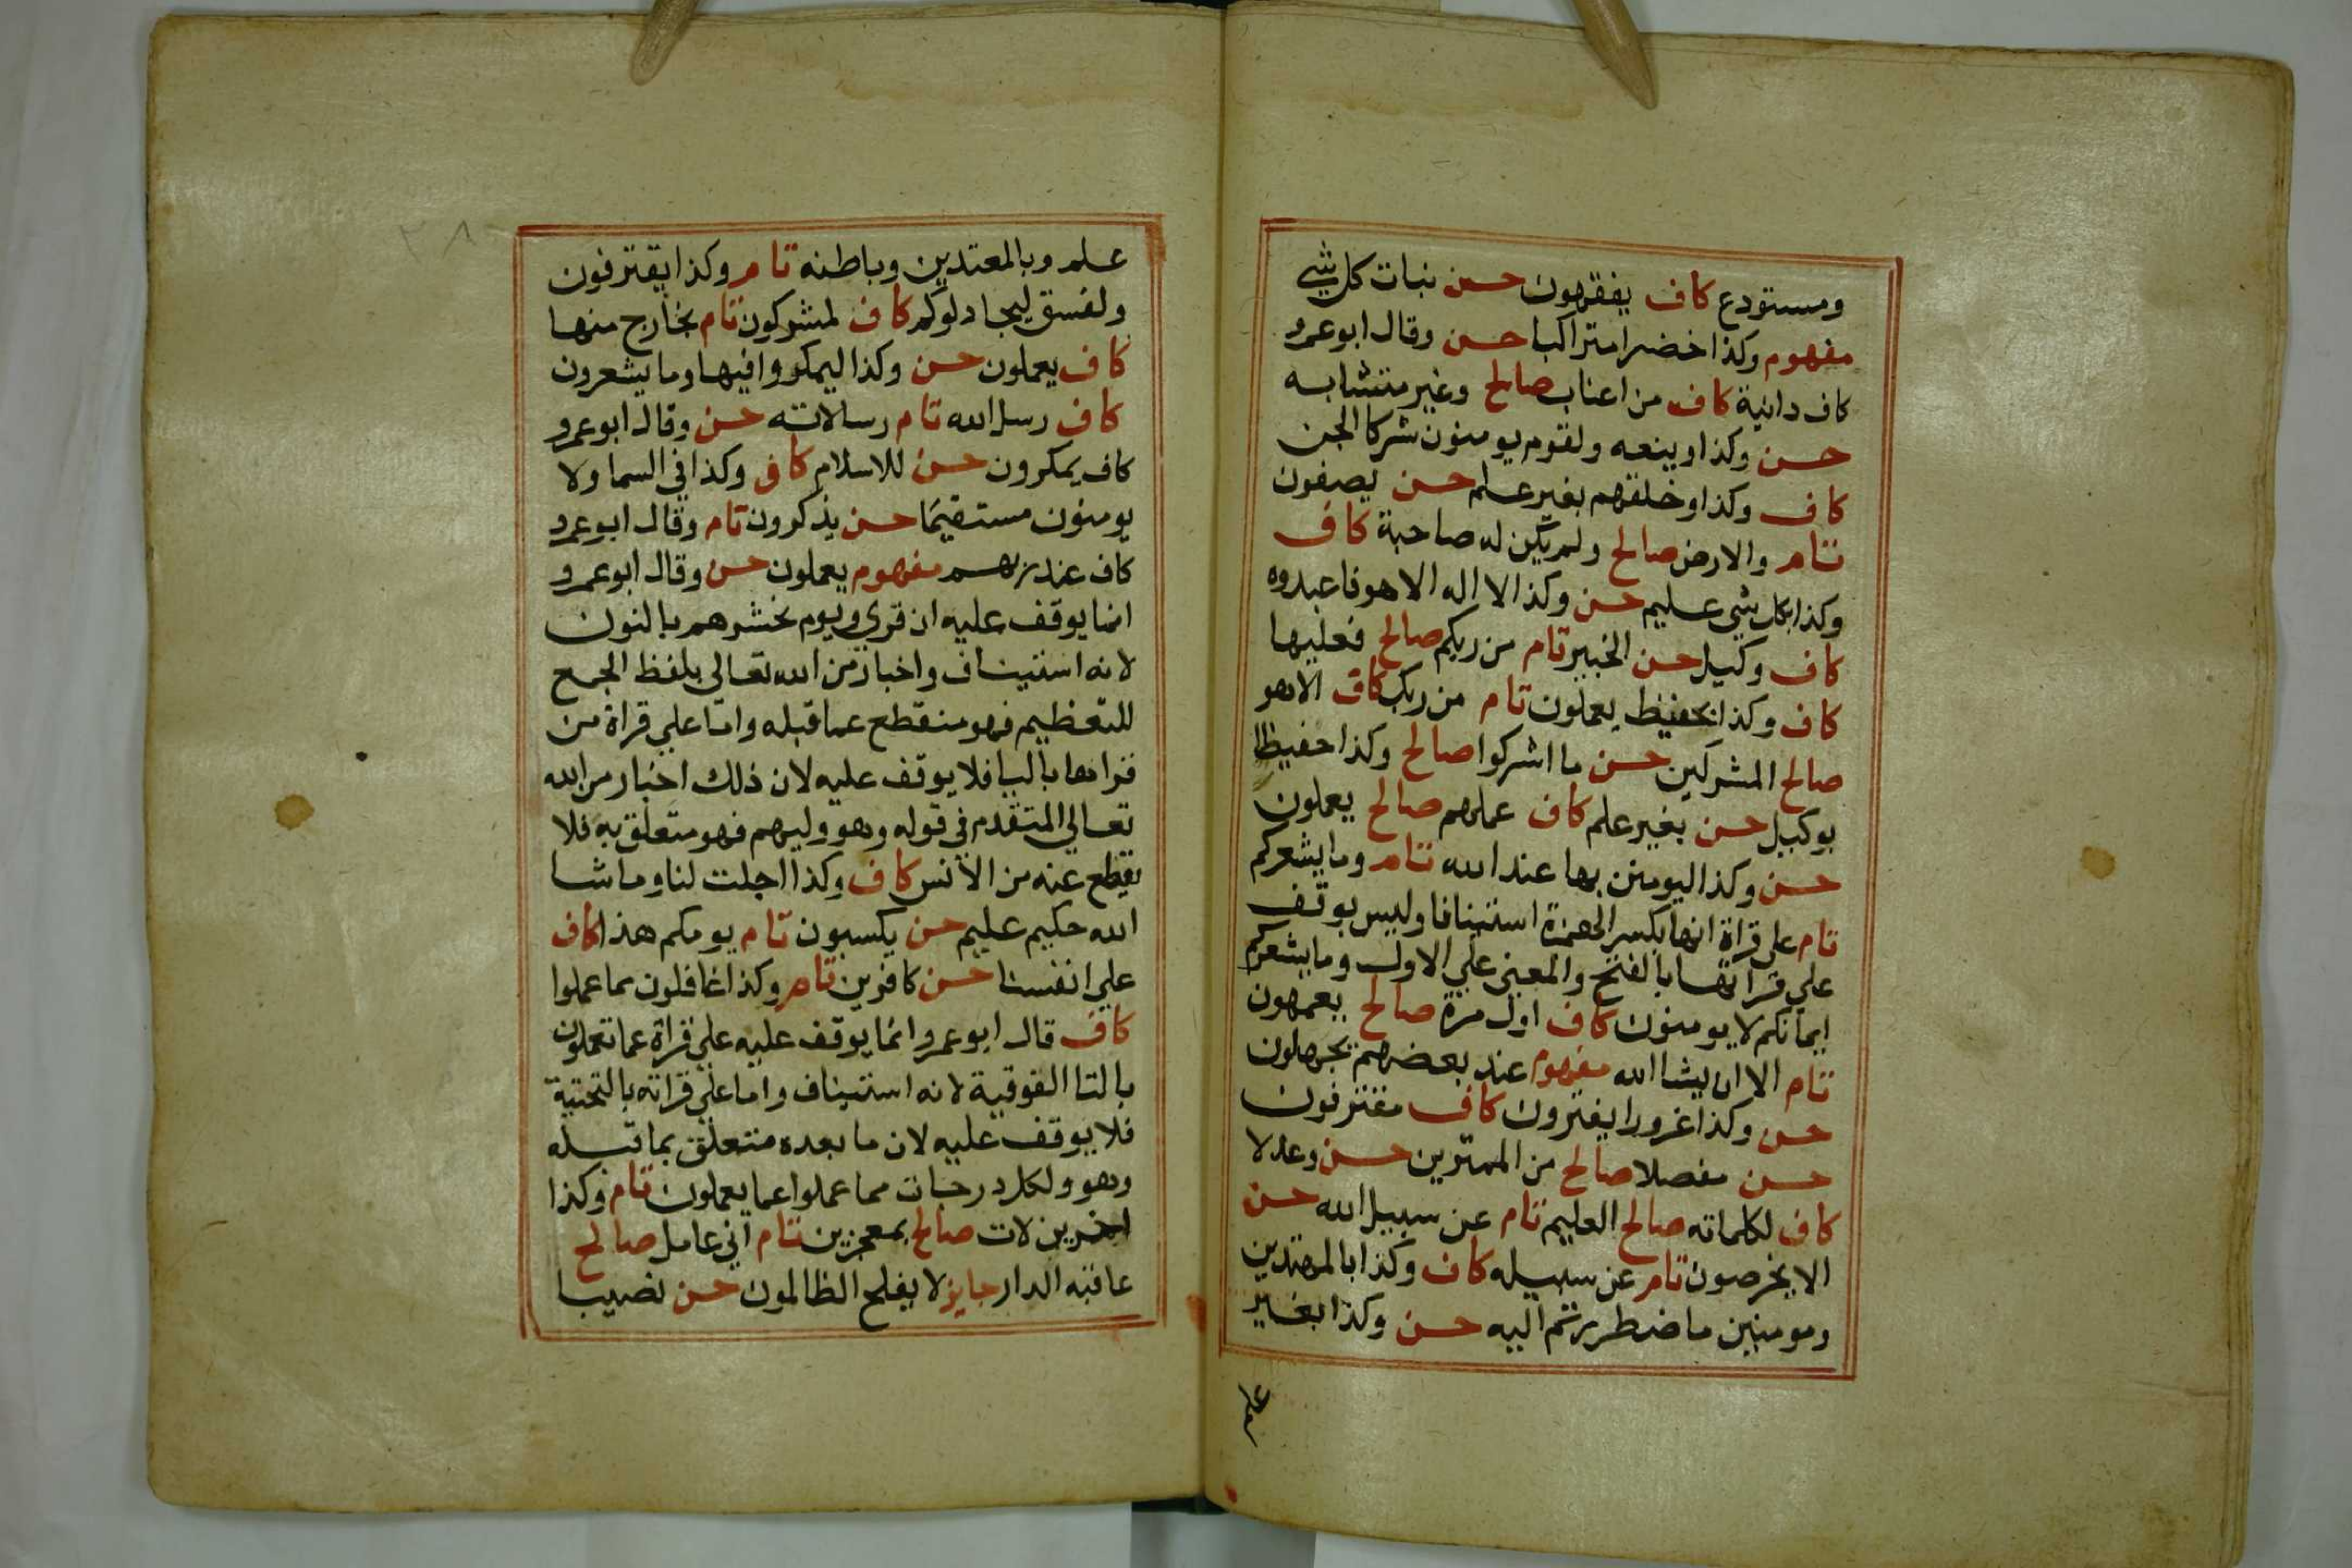 ومستودع كاف يفقهون حسن نبات كل شي
مفهوم وكذا خضرا متراكبا حسن وقال ابو عمرو
كاف دانية كاف من اعناب صالح وغير متشابه
حسن وكذا وينعه ولقوم يومنون شركا الجن
كاف وكذا وخلقهم بغير علم حسن يصفون
تام والارض صالح ولم تكن له صاحبة كاف
وكذا بكل شي عليم حسن وكذا لا اله الا هو فاعبدوه
كاف وكيل حسن الخبير تام من ربكم صالح فعليها
كاف وكذا بحفيظ يعملون تام من ربك كاف الا هو
صالح المشركين حسن ما اشركوا صالح وكذا حفيظا
بوكيل حسن بغير علم كاف عملهم صالح يعملون
حسن وكذا ليومنن بها عند الله تام وما يشعركم
تام على قراة انها بكسر الهمزة استئنافا وليس بوقف
علي قراتها بالفتح والمعني علي الاول وما يشعركم
ايمانكم لا يومنون كاف اول مرة صالح يعمهون
تام الا ان يشا الله مفهوم عند بعضهم يجهلون
حسن وكذا غرورا يفترون كاف مقترفون
حسن مفصلا صالح من الممترين حسن وعدلا
كاف لكلماته صالح العليم تام عن سبيل الله حسن
الا يخرصون تام عن سبيله كاف وكذا بالمهتدين
ومومنين ما ضطررتم اليه حسن وكذا بغير
علم
٢٨
علم وبالمعتدين وباطنه تام وكذا يقترفون
ولفسق ليجادلوكم كاف لمشركون تام بخارج منها
كاف يعملون حسن وكذا ليمكروا فيها وما يشعرون
كاف رسل الله تام رسالاته حسن وقال ابو عمرو
كاف يمكرون حسن للاسلام كاف وكذا في السما ولا
يومنون مستقيما حسن يذكرون تام وقال ابو عمرو
كاف عند ربهم مفهوم يعملون حسن وقال ابو عمرو
انما يوقف عليه ان قري ويوم نحشرهم بالنون
لانه استيناف واخبار من الله تعالى بلفظ الجمع
للتعظيم فهو منقطع عما قبله واما علي قراة من
قراها بالبا فلا يوقف عليه لان ذلك اخبار من الله
تعالي المتقدم في قوله وهو وليهم فهو متعلق به فلا
يقطع عنه من الانس كاف وكذا اجلت لنا وما شا
الله حكيم عليم حسن يكسبون تام يومكم هذا كاف
علي انفسنا حسن كافرين تام وكذا غافلون مما عملوا
كاف قال ابو عمرو انما يوقف عليه علي قراة عما تعملون
بالتا الفوقية لانه استيناف واما علي قراته بالتحتية
فلا يوقف عليه لان ما بعده متعلق بما قبله
وهو ولكل درجات مما عملوا عما يعملون تام وكذا
اخرين لات صالح بمعجزين تام اني عامل صالح
عاقبه الدار جايز لا يفلح الظالمون حسن نصيبا